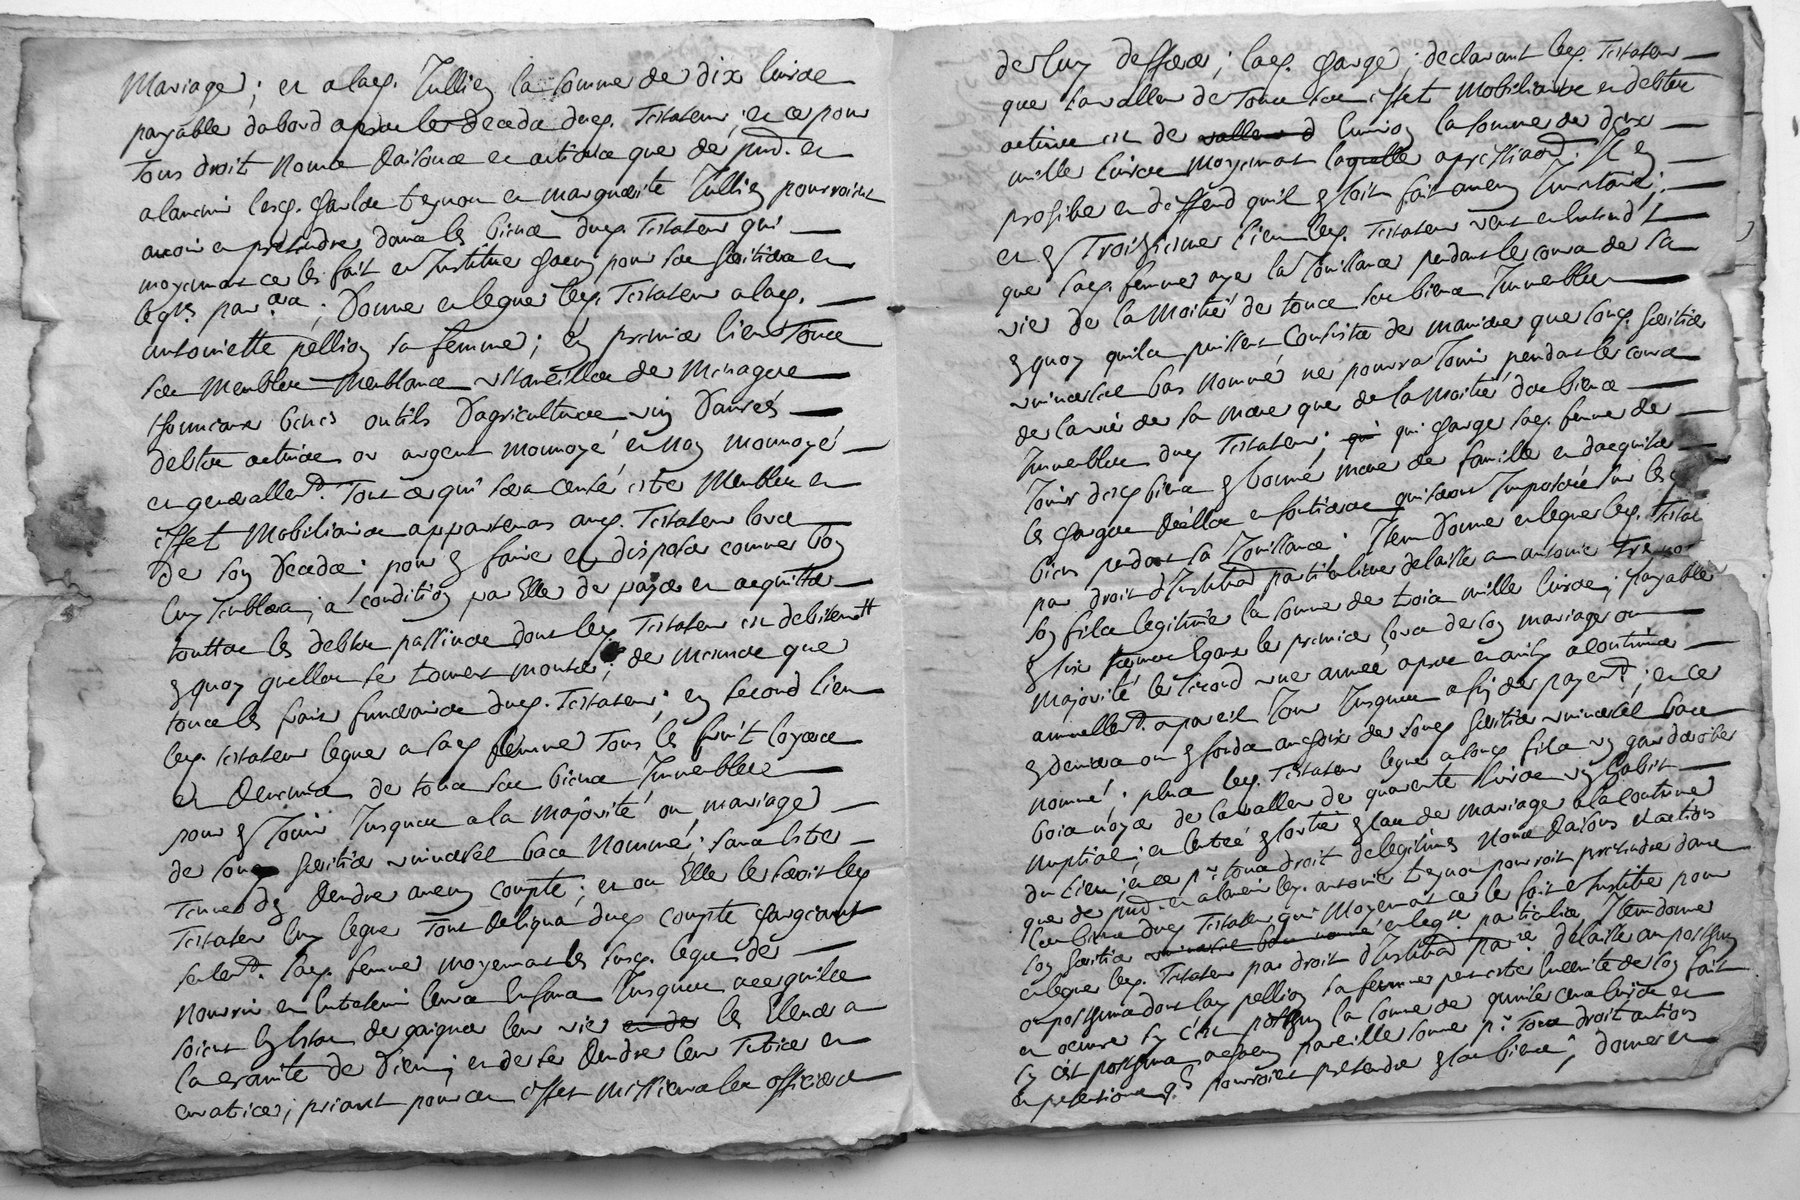 Mariage; et a lad. Jullien la somme de dix livres
payable dabord apres le decedz dud. Testateur; et ce pour
Tous droit noms raisons et actions que de pnt. et
alavenir lesd. Charles teynon et marguerite Jullien pourroient
avoir et pretendre dans les biens dud. Testateur qui
moyenant ce les fait et Institue chacun pour ses heritiers en
leg.ts par.ers; Donne et legue led. Testateur a lad.
antoinette pellion sa femme; en premier lieu Tous
ses Meubles Meublants ustancilles de Menage
fourniere bines outils D'agriculture vin Danrés
debtes actives or argent monnoyé et non monnoyé
et generallem.t Tout ce qui sera censé estre Meubles et
effet Mobiliaires appartenans aud. Testateur lors
de son Decedz; pour en faire et disposer comme bon
luy semblera; a condition par Elle de payer et acquitter
touttes les debtes passives dont led. Testateur est debiteur
a quoy quelles se trouvent monter; de mesme que
tous les frais funeraires dud. Testateur; en second lieu
led. testateur legue a sad. femme Tous les fruit loyers
et Revenus de tous ses biens Immeubles
pour en Jouir Jusques a la majorité ou mariage
de son heritier universel bas nommé; sans estre
Tenue d'en Rendre aucun compte; et ou Elle le seroit led.
Testateur luy legue Tout Reliqua dud. compte chargeant
seulem.t lad. femme moyenant les susd. legs de
nourrir et entretenir leurs Enfans Jusques a ce quils
soient en estat de gaigner leur vie les Ellever a
la crainte de Dieu; et de se Rendre leur Tutrice et
curatrice; priant pour cet effet messieurs les officiers
de luy defferer; lad. charge; declarant led. Testateur
que la valleur de Tous ses effet Mobiliaires et debtes
actives est de environ la somme de deux
mille livres moyenant laquelle appretiaon; Il en
prohibe et deffend quil en soit fait aucun Inventaire;
et en Troisiesme lieu led. Testateur veut et entend
que sad. femme aye la Jouissance pendant le cours de sa
vie de la Moitié de tous ses biens Immeubles
en quoy quils puissent Consister de maniere que sond. heritier
universel bas nommé ne pourra Jouir pendant le cours
de la vie de sa mere que de la moitié des biens
Immeubles dud. Testateur; qui charge sad. femme de
Jouir desd. biens en bonne mere de famille et dacquitter
les charges Reelles et foncieres qui seront Imposées sur les
biens pendant sa Jouissance; Item Donne et legue led. Testat
par droit d'Institu.on particuliere delaisse a antoine treynon
son fils legitime la somme de trois mille livres; payable
termes Egaux le premier lors de son mariage ou
majorité le second une année apres et ainsi a continuer
annuellem.t a pareil Jour Jusques a fin de payem.t; et ce
en deniers ou en fonds au choix de sond. heritier universel bas
nommé; plus led. Testateur legue a sond. fils un garderobe
bois noyer de la valleur de quarente livres un habit
nuptial; et lentrée et sortie en cas de mariage a la coutume
du lieu; et ce p.r tous droit de legitime noms Raisons et actions
que de pnt. et alavenir led. antoine teynon pourroit pretendre dans
les biens dud. Testateur qui Moyenant ce le fait et Institue pour
son heritier et leg.re particulier Item donne
et legue led. Testateur par droit d'Institu.on par.re delaisse au posthume
ou posthuma dont lad. pellion sa femme peut estre Enceinte de son fait
et oeuvre sy cest posthum la somme de quinze cens livres et
sy cest posthuma a chacun pareille somme p.r Tous droit actions
et pretentions q.ls pourroient pretendre en ses biens; donne et